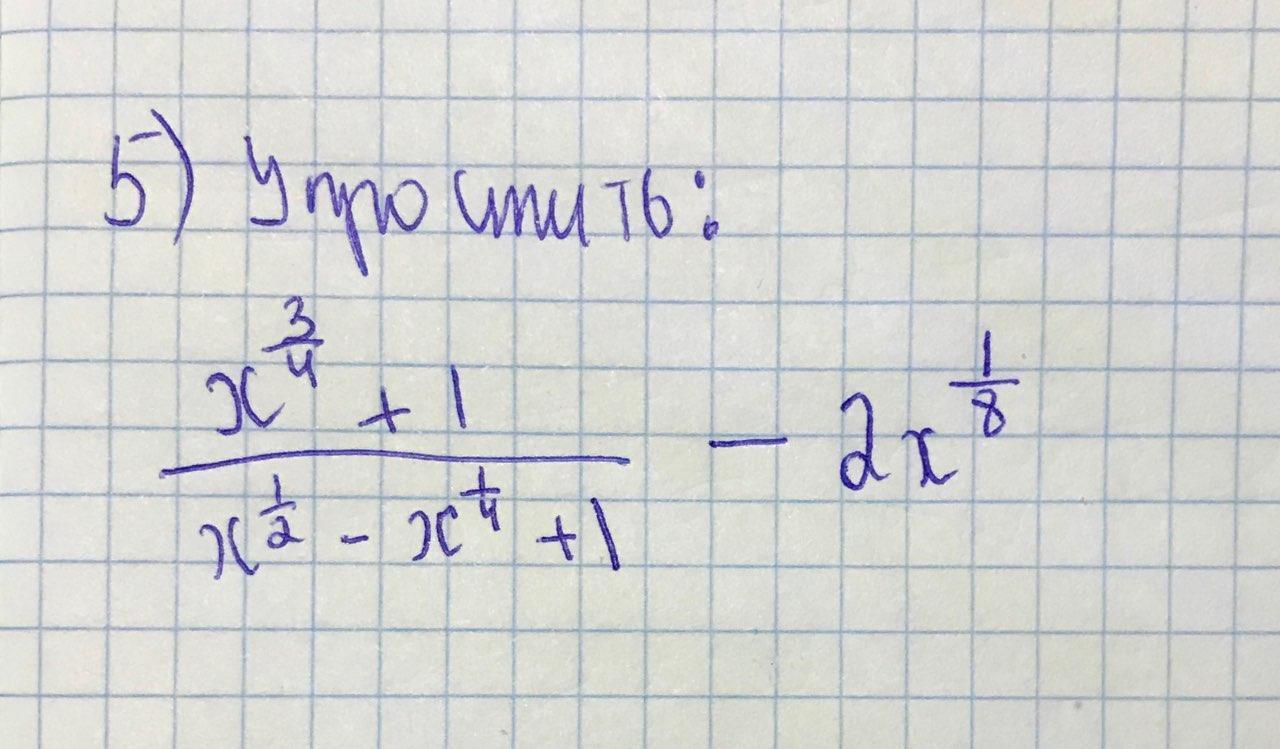 5) Упростить:
\frac{x^{\frac{3}{4}} + 1}{x^{\frac{1}{2}} - x^{\frac{1}{4}} + 1} - 2x^{\frac{1}{8}}